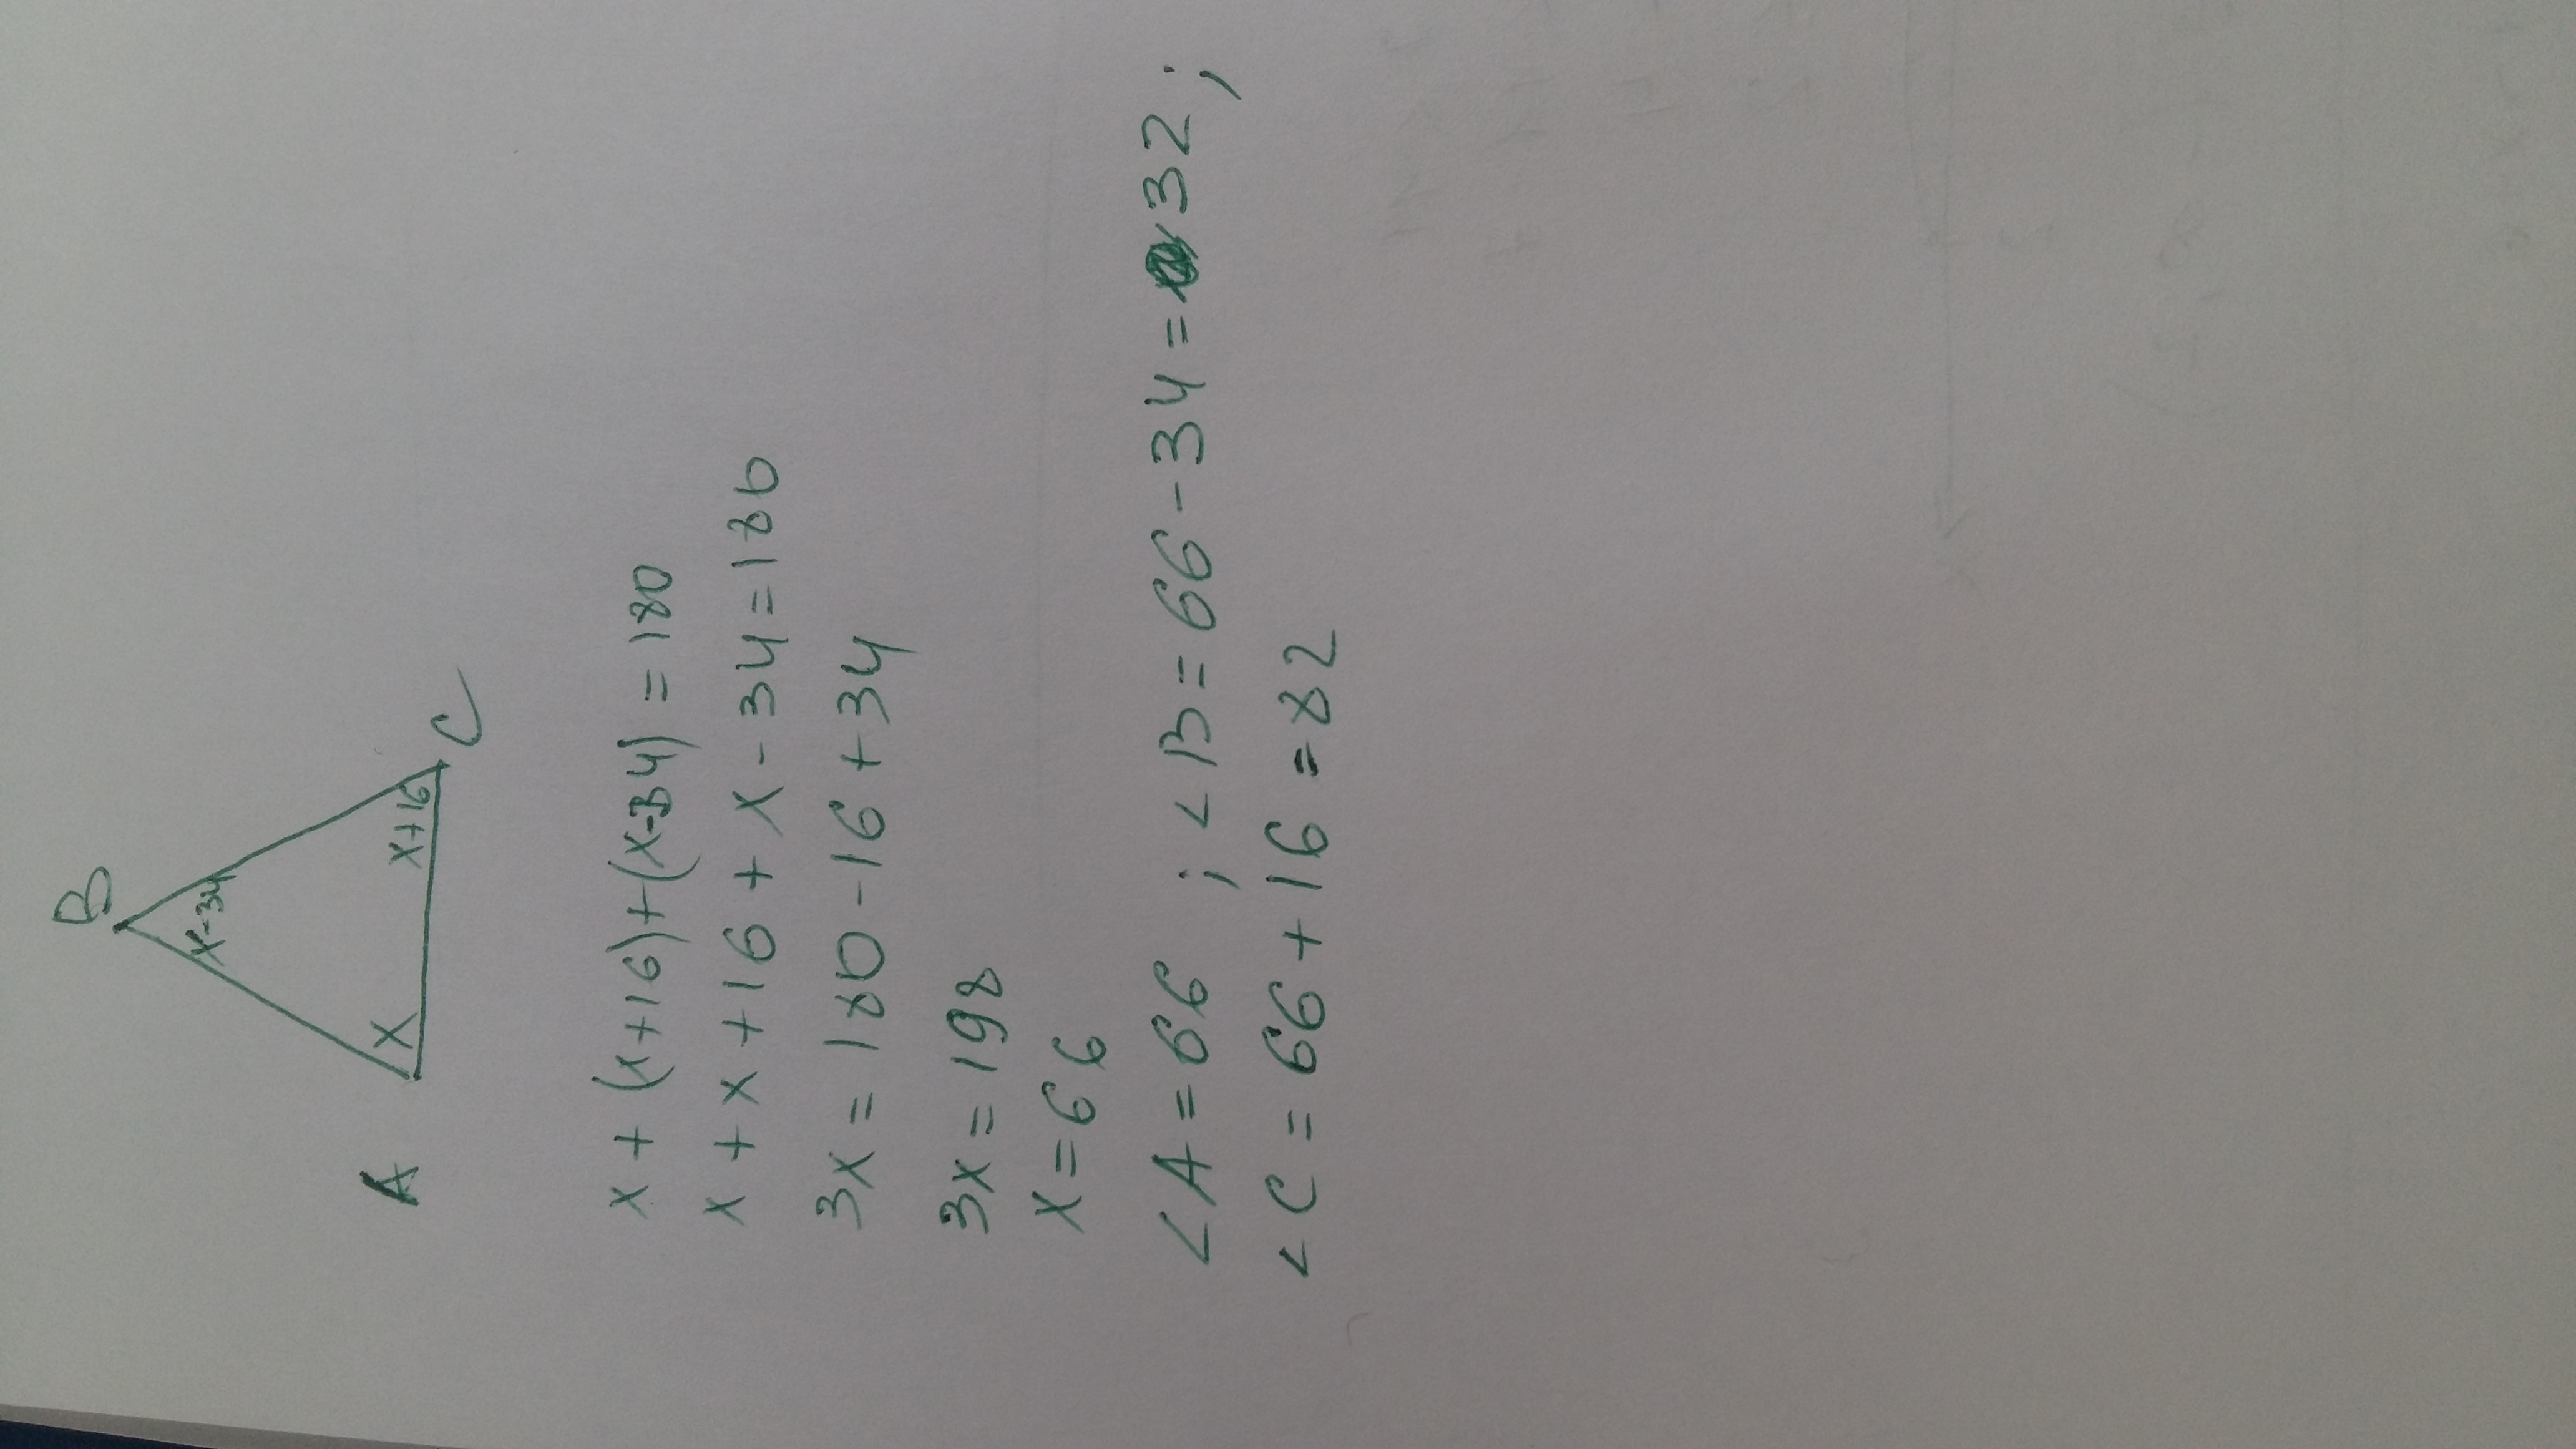 B
x-34
A
x
x+16
C
x + (x+16)+(x-34) = 180
x + x +16 + x - 34 = 180
3x = 180 - 16 + 34
3x = 198
x = 66
∠A = 66 ; ∠B = 66 - 34 = 32 ;
∠C = 66 + 16 = 82